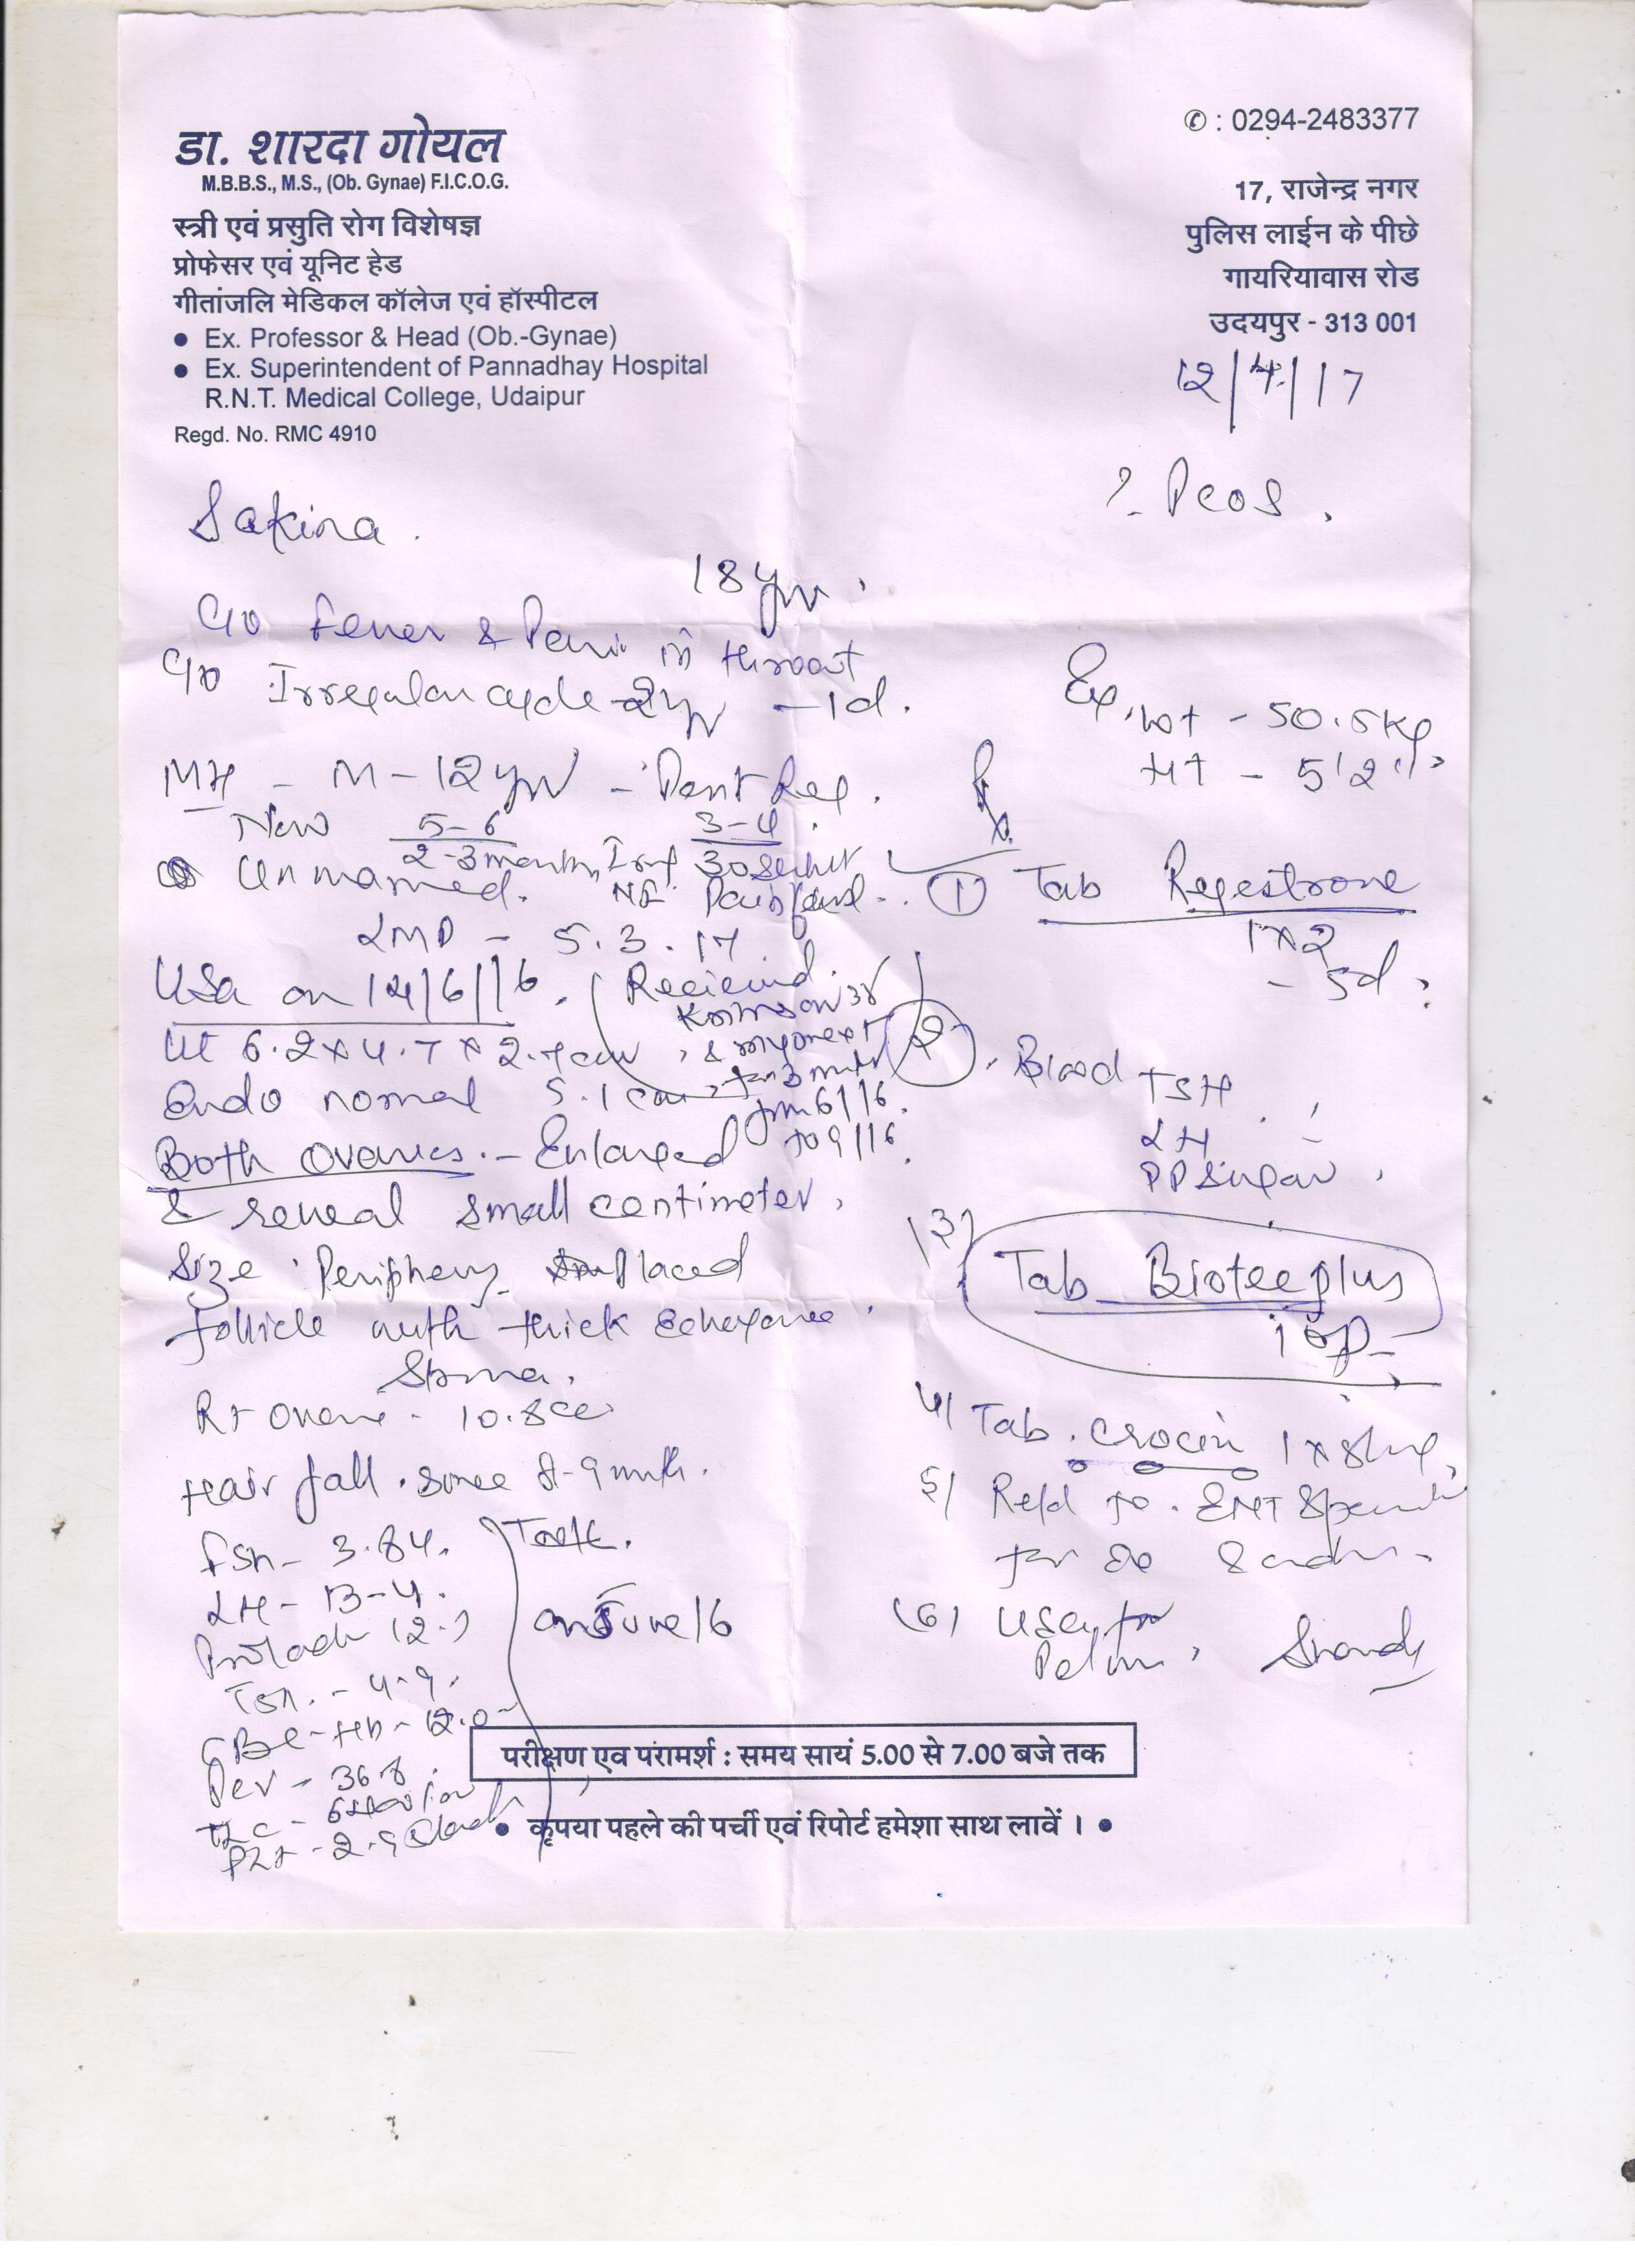 ✆ : 0294-2483377
डा. शारदा गोयल
M.B.B.S., M.S., (Ob. Gynae) F.I.C.O.G.
स्त्री एवं प्रसुति रोग विशेषज्ञ
प्रोफेसर एवं यूनिट हेड
गीतांजलि मेडिकल कॉलेज एवं हॉस्पीटल
• Ex. Professor & Head (Ob.-Gynae)
• Ex. Superintendent of Pannadhay Hospital
R.N.T. Medical College, Udaipur
Regd. No. RMC 4910
17, राजेन्द्र नगर
पुलिस लाईन के पीछे
गायरियावास रोड
उदयपुर - 313 001
12/4/17
? PCOS.
Sakina.
18 yr.
C/o Fever & Pain in throat
- 1d.
C/o Irregular cycle - 2 yr
MH - M - 12 yr - Past Reg.
Now 5-6 / 2-3 months, Irreg 3-4 / 30
Unmarried. Painful.
LMP - 5.3.17
USG on 14/6/16.
Recieved
& for 3 mths
from 6/16.
to 9/16.
Ut 6.2 x 4.7 x 2.7 cm
Endo normal 5.1 cm
Both Ovaries - Enlarged
& several small centimeter,
size Periphery placed
follicle with thick echogenic
Stroma.
Rt Ovary - 10.8 cc
Hair fall. since 8-9 mnth.
FSH - 3.84.
LH - 13-4.
Prolactin 12.
TSH. - 4.9.
CBC - Hb - 12.0
PCV - 36.8
TLC -
PLT - 2.9
on June/16
Ex. Wt - 50.5 Kg
Ht - 5'2"
Rx
(1) Tab Regestrone
1x2
- 5d.
(2). Blood TSH
LH
PP Sugar,
(3) Tab Bioteeplus
1 OD
4) Tab. Crocin 1 x
5) Refd to. ENT
for &
(6) USG for
Pelvis,
परीक्षण एव परामर्श : समय सायं 5.00 से 7.00 बजे तक
• कृपया पहले की पर्ची एवं रिपोर्ट हमेशा साथ लावें । •